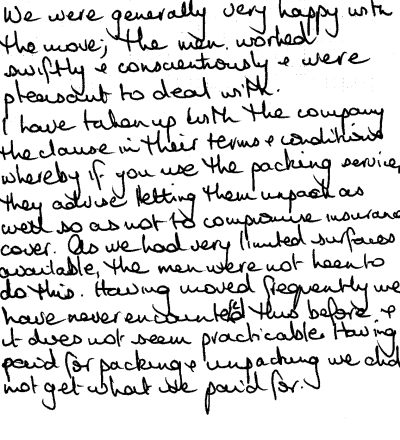 We were generally very happy with
the move; the men worked
swiftly & conscientiously & were
pleasant to deal with.
I have taken up with the company
the clause in their terms & conditions
whereby if you use the packing service,
they advise letting them unpack as
well so as not to compromise insurance
cover. As we had very limited surfaces
available, the men were not keen to
do this. Having moved frequently we
have never encountered this before, &
it does not seem practicable. Having
paid for packing & unpacking we did
not get what we paid for.